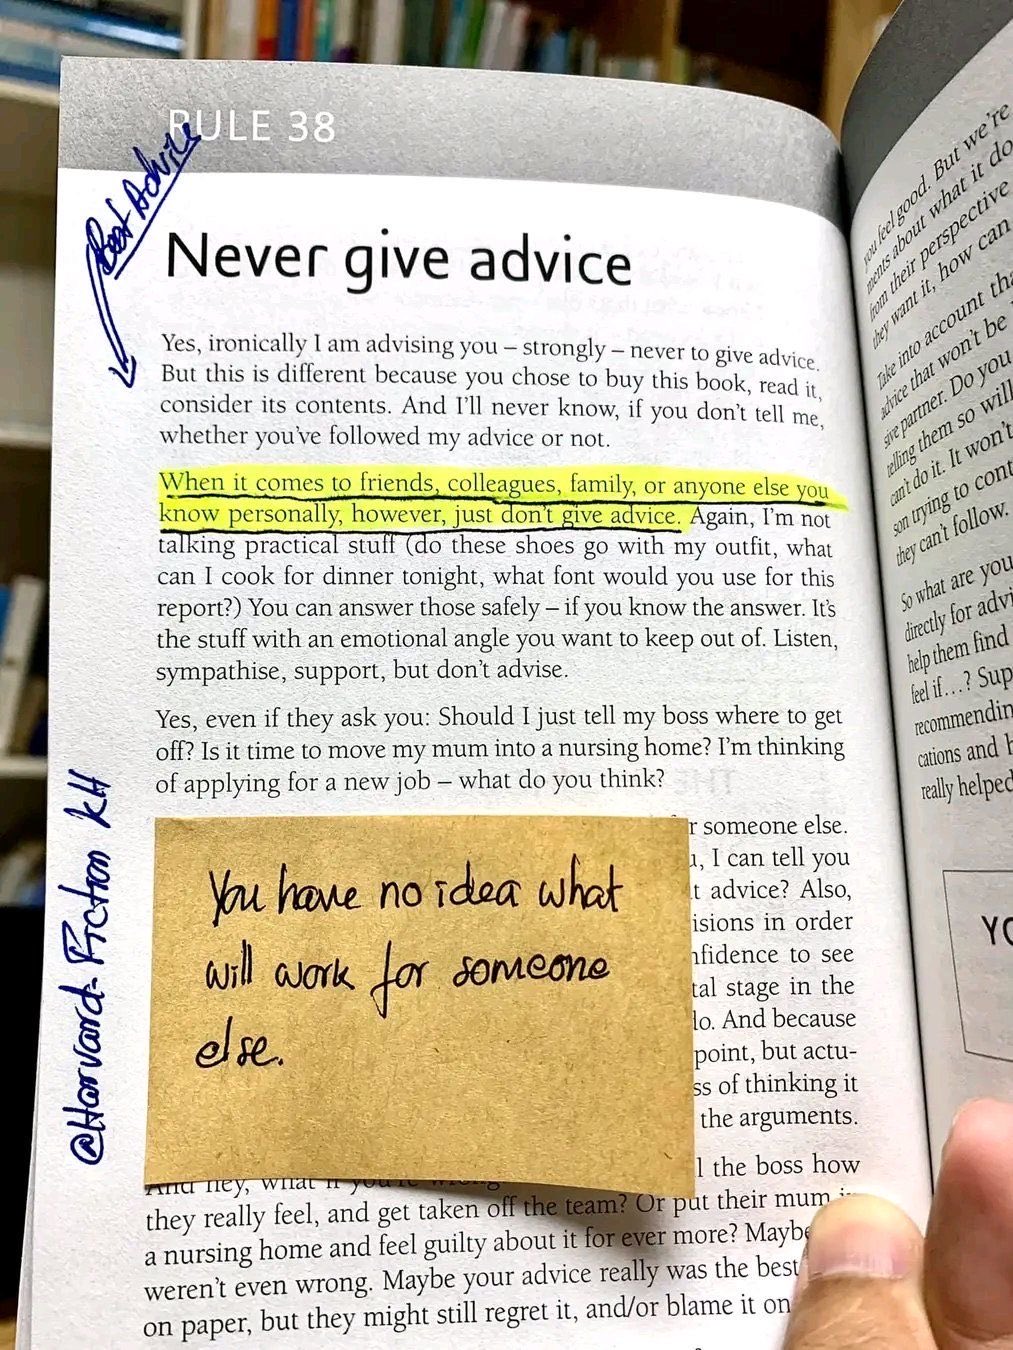 RULE 38
Best Advice
Never give advice
Yes, ironically I am advising you – strongly – never to give advice.
But this is different because you chose to buy this book, read it,
consider its contents. And I'll never know, if you don't tell me,
whether you've followed my advice or not.
When it comes to friends, colleagues, family, or anyone else you
know personally, however, just don't give advice. Again, I'm not
talking practical stuff (do these shoes go with my outfit, what
can I cook for dinner tonight, what font would you use for this
report?) You can answer those safely – if you know the answer. It's
the stuff with an emotional angle you want to keep out of. Listen,
sympathise, support, but don't advise.
Yes, even if they ask you: Should I just tell my boss where to get
off? Is it time to move my mum into a nursing home? I'm thinking
of applying for a new job – what do you think?
@Harvard-Fiction kH
You have no idea what
will work for someone
else.
someone else.
I can tell you
advice? Also,
in order
to see
stage in the
And because
point, but actu-
of thinking it
the arguments.
And hey, what if you're
the boss how
they really feel, and get taken off the team? Or put their mum
a nursing home and feel guilty about it for ever more? Maybe
weren't even wrong. Maybe your advice really was the best
on paper, but they might still regret it, and/or blame it on
you feel good. But we're
ments about what it do
from their perspective
they want it, how can
Take into account tha
advice that won't be
partner. Do you
telling them so will
can't do it. It won't
son trying to cont
they can't follow.
So what are you
directly for advi
help them find
feel if…? Sup
recommendin
cations and h
really helped
YO